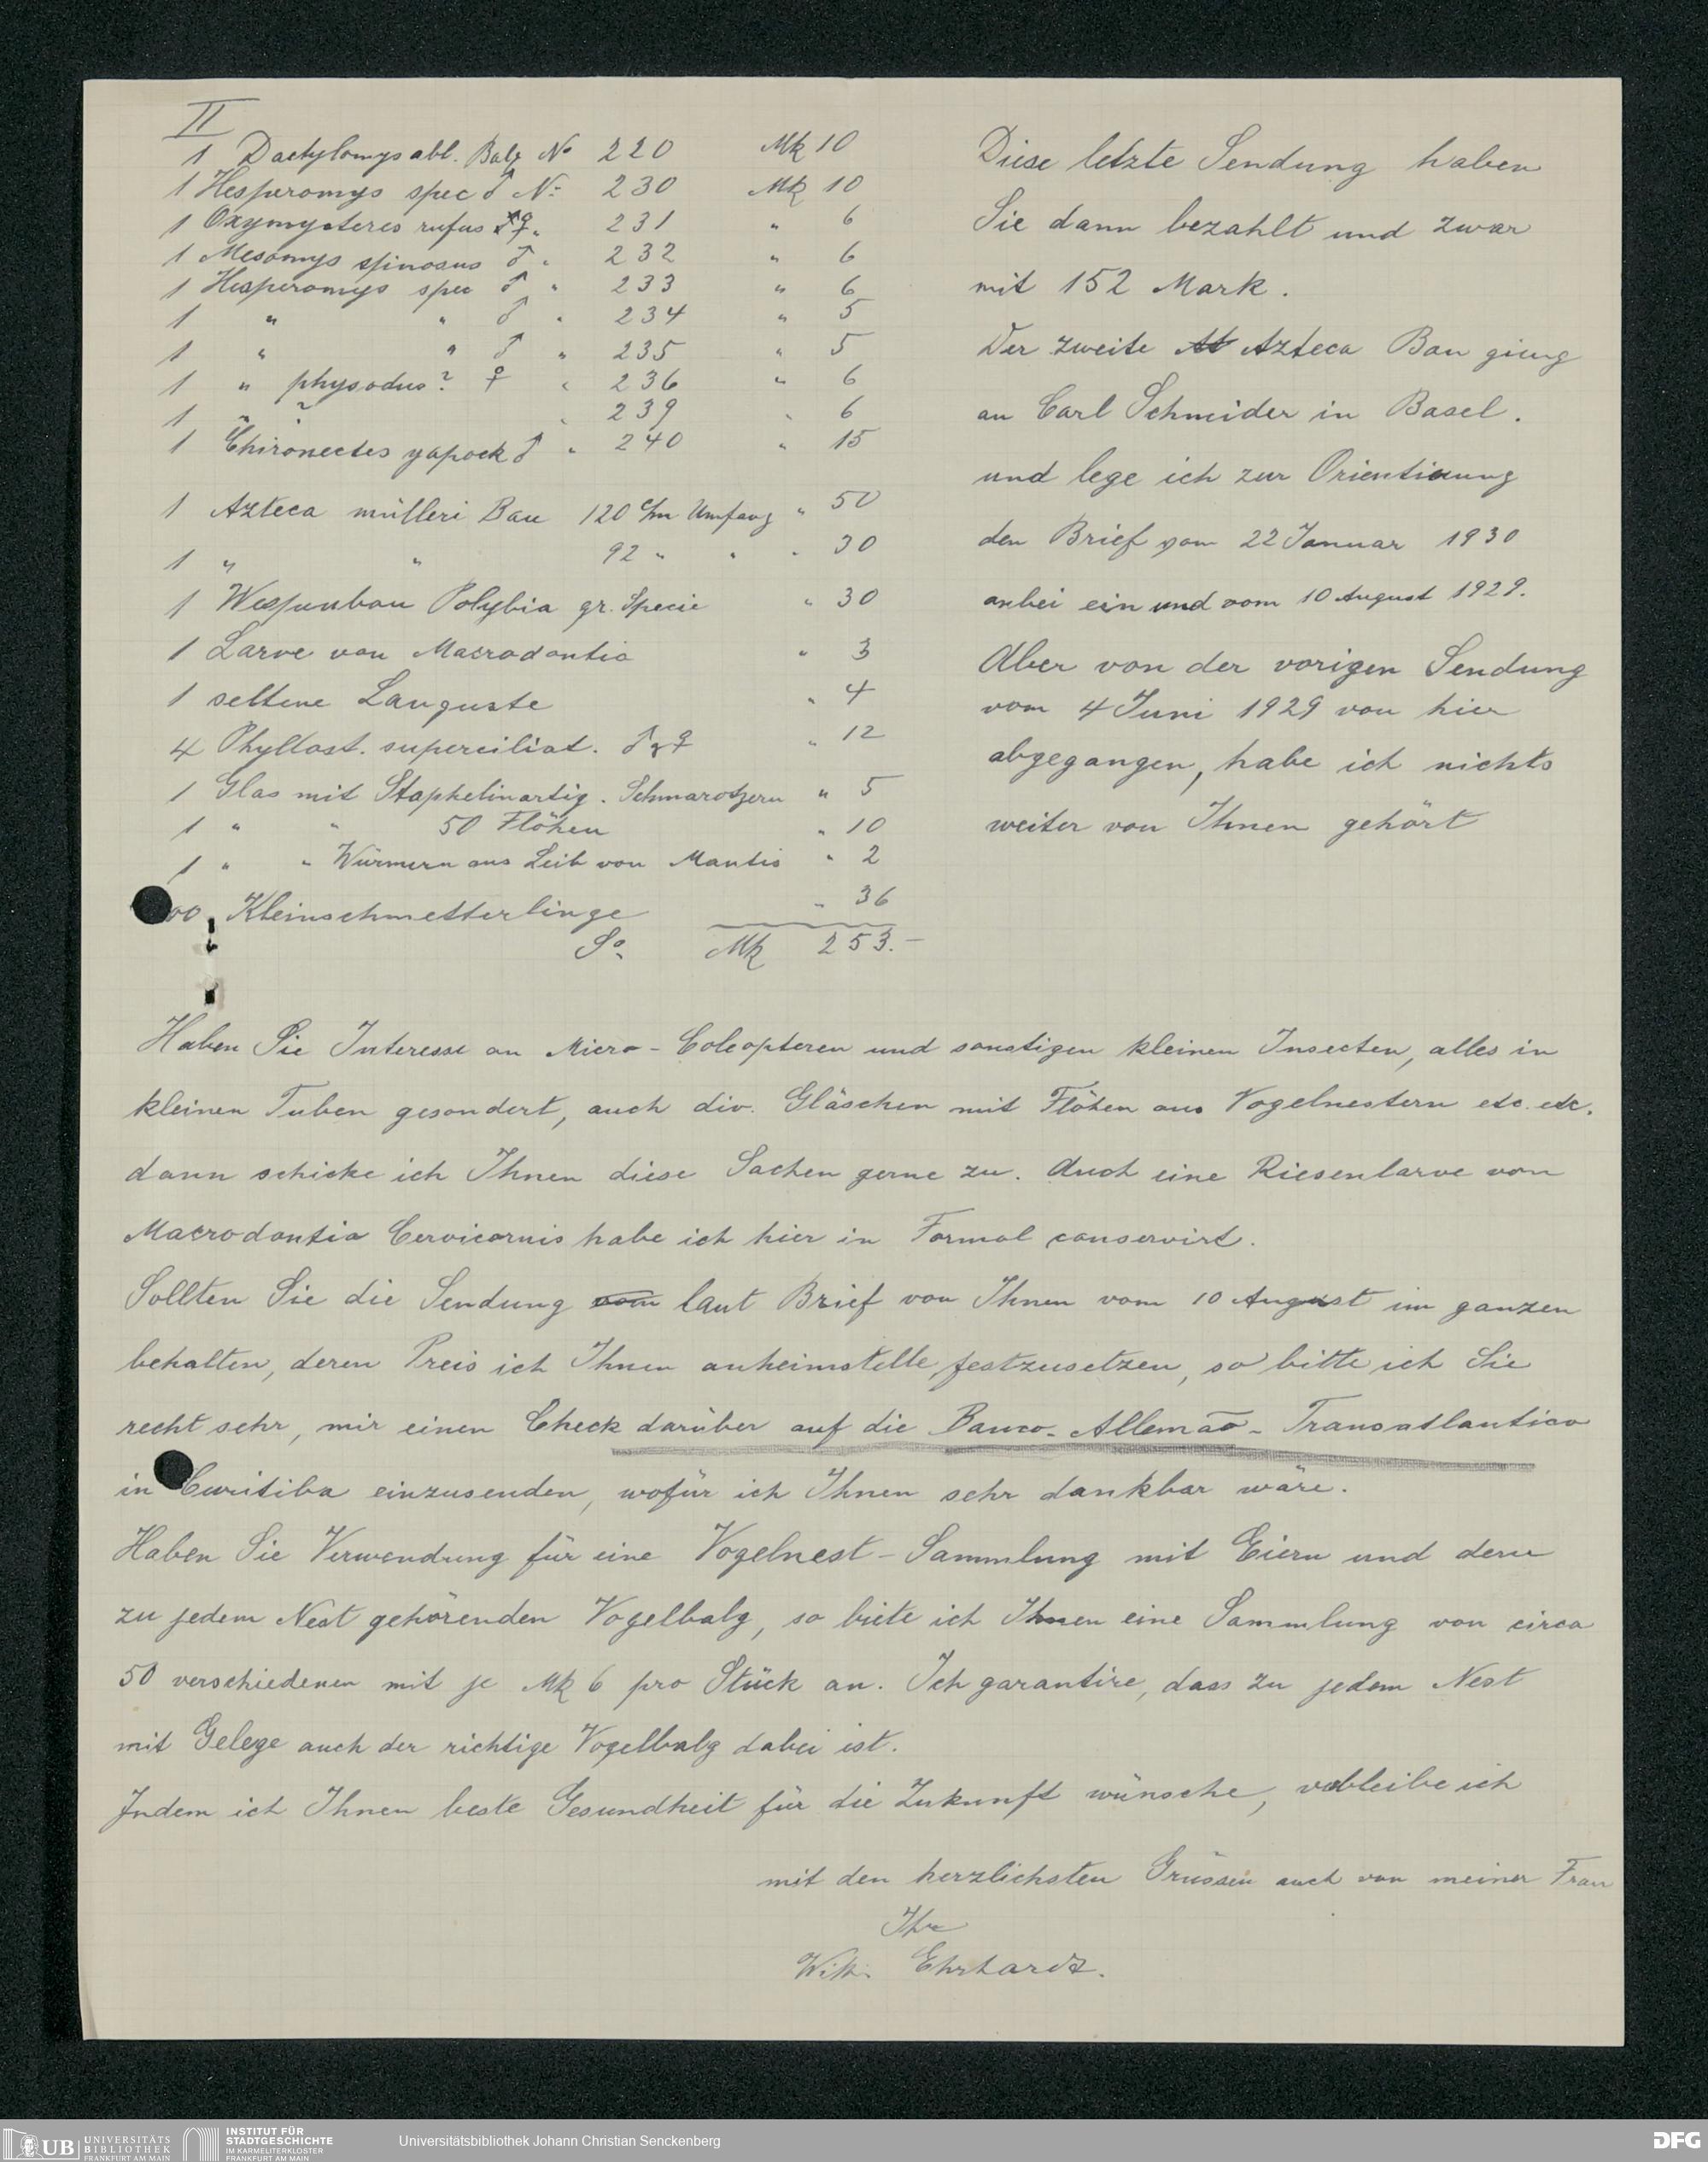 II
1 Dactylomys abl. Balg No 220 Mk 10
1 Hesperomys spec ♂ No 230 Mk 10
1 Oxymysteres rufus ♀ " 231 " 6
1 Mesomys spinosus ♂ " 232 " 6
1 Hesperomys spec ♂ " 233 " 6
1 " " ♂ " 234 " 5
1 " " ♂ " 235 " 5
1 " physodus? ♀ " 236 " 6
1 " ? " 239 " 6
1 Chironectes yapock ♂ " 240 " 15
1 Azteca mülleri Bau 120 c/m Umfang " 50
1 " " 92 " " " 30
1 Wespenbau Polybia gr. Specie " 30
1 Larve von Macrodontia " 3
1 seltene Languste " 4
4 Phyllost. superciliat. ♂ ♀ " 12
1 Glas mit Staphelinartig. Schmarotzern " 5
1 " " 50 Flöhen " 10
1 " " Würmern aus Leib von Mantis " 2
00 Kleinschmetterlinge " 36
Sa. Mk 253.–
Diese letzte Sendung haben
Sie dann bezahlt und zwar
mit 152 Mark.
Der zweite At Azteca Bau ging
an Carl Schneider in Basel.
und lege ich zur Orientierung
den Brief vom 22 Januar 1930
anbei ein und vom 10 August 1929.
Aber von der vorigen Sendung
vom 4 Juni 1929 von hier
abgegangen, habe ich nichts
weiter von Ihnen gehört
Haben Sie Interesse an Micro-Coleopteren und sonstigen kleinen Insecten, alles in
kleinen Tuben gesondert, auch div. Gläschen mit Flöhen aus Vogelnestern etc. etc.
dann schicke ich Ihnen diese Sachen gerne zu. Auch eine Riesenlarve von
Macrodontia Cervicornis habe ich hier in Formol conservirt.
Sollten Sie die Sendung vom laut Brief von Ihnen vom 10 August im ganzen
behalten, deren Preis ich Ihnen anheimstelle festzusetzen, so bitte ich Sie
recht sehr, mir einen Check darüber auf die Banco-Allemão-Transatlantico
in Curitiba einzusenden, wofür ich Ihnen sehr dankbar wäre.
Haben Sie Verwendung für eine Vogelnest-Sammlung mit Eiern und dem
zu jedem Nest gehörenden Vogelbalg, so biete ich Ihnen eine Sammlung von circa
50 verschiedenen mit je Mk 6 pro Stück an. Ich garantire, dass zu jedem Nest
mit Gelege auch der richtige Vogelbalg dabei ist.
Indem ich Ihnen beste Gesundheit für die Zukunft wünsche, verbleibe ich
mit den herzlichsten Grüssen auch von meiner Frau
Ihr
Wilh. Ehrhardt.
UB UNIVERSITÄTS
BIBLIOTHEK
FRANKFURT AM MAIN
INSTITUT FÜR
STADTGESCHICHTE
IM KARMELITERKLOSTER
FRANKFURT AM MAIN
Universitätsbibliothek Johann Christian Senckenberg
DFG